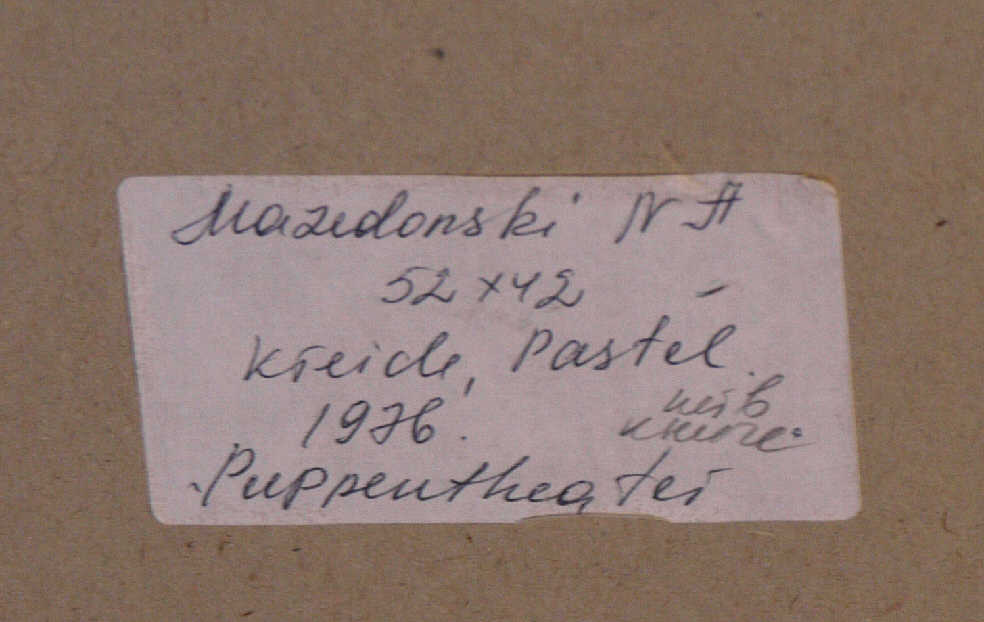 Mazedonski N A
52 x 42 -
Kreide, Pastel.
1976.
Puppentheater